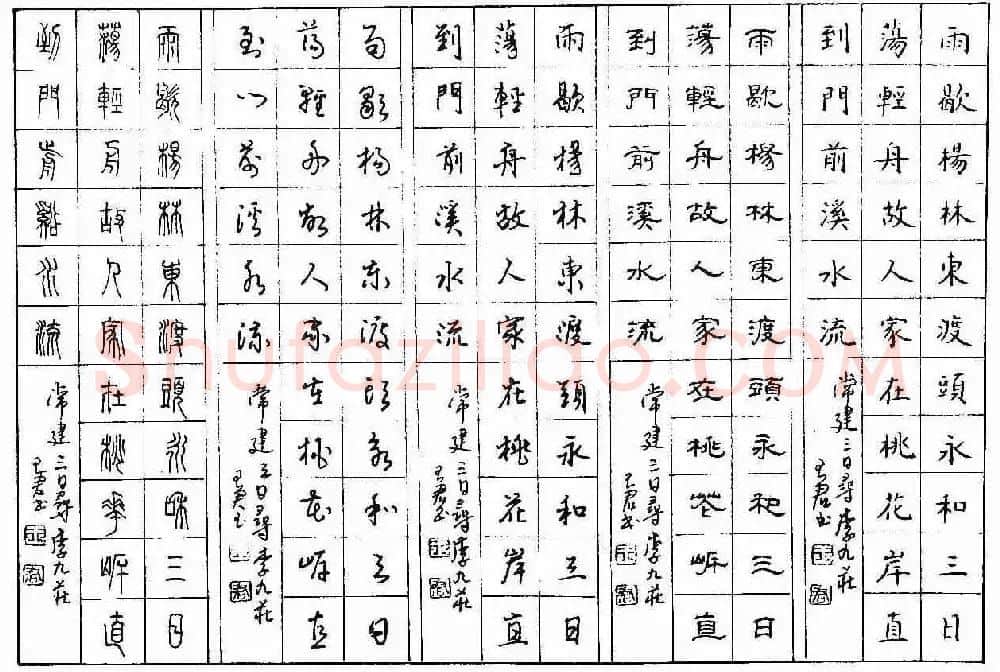 雨歇楊林東渡頭永和三日
蕩輕舟故人家在桃花岸直
到門前溪水流
常建三日尋李九莊
雨歇楊林東渡頭永和三日
蕩輕舟故人家在桃花岸直
到門前溪水流
常建三日尋李九莊
雨歇楊林東渡頭永和三日
蕩輕舟故人家在桃花岸直
到門前溪水流
常建三日尋李九莊
雨歇楊林東渡頭永和三日
蕩輕舟故人家在桃花岸直
到門前溪水流
常建三日尋李九莊
雨歇楊林東渡頭永和三日
蕩輕舟故人家在桃花岸直
到門前溪水流
常建三日尋李九莊
Shufaziliao.COM